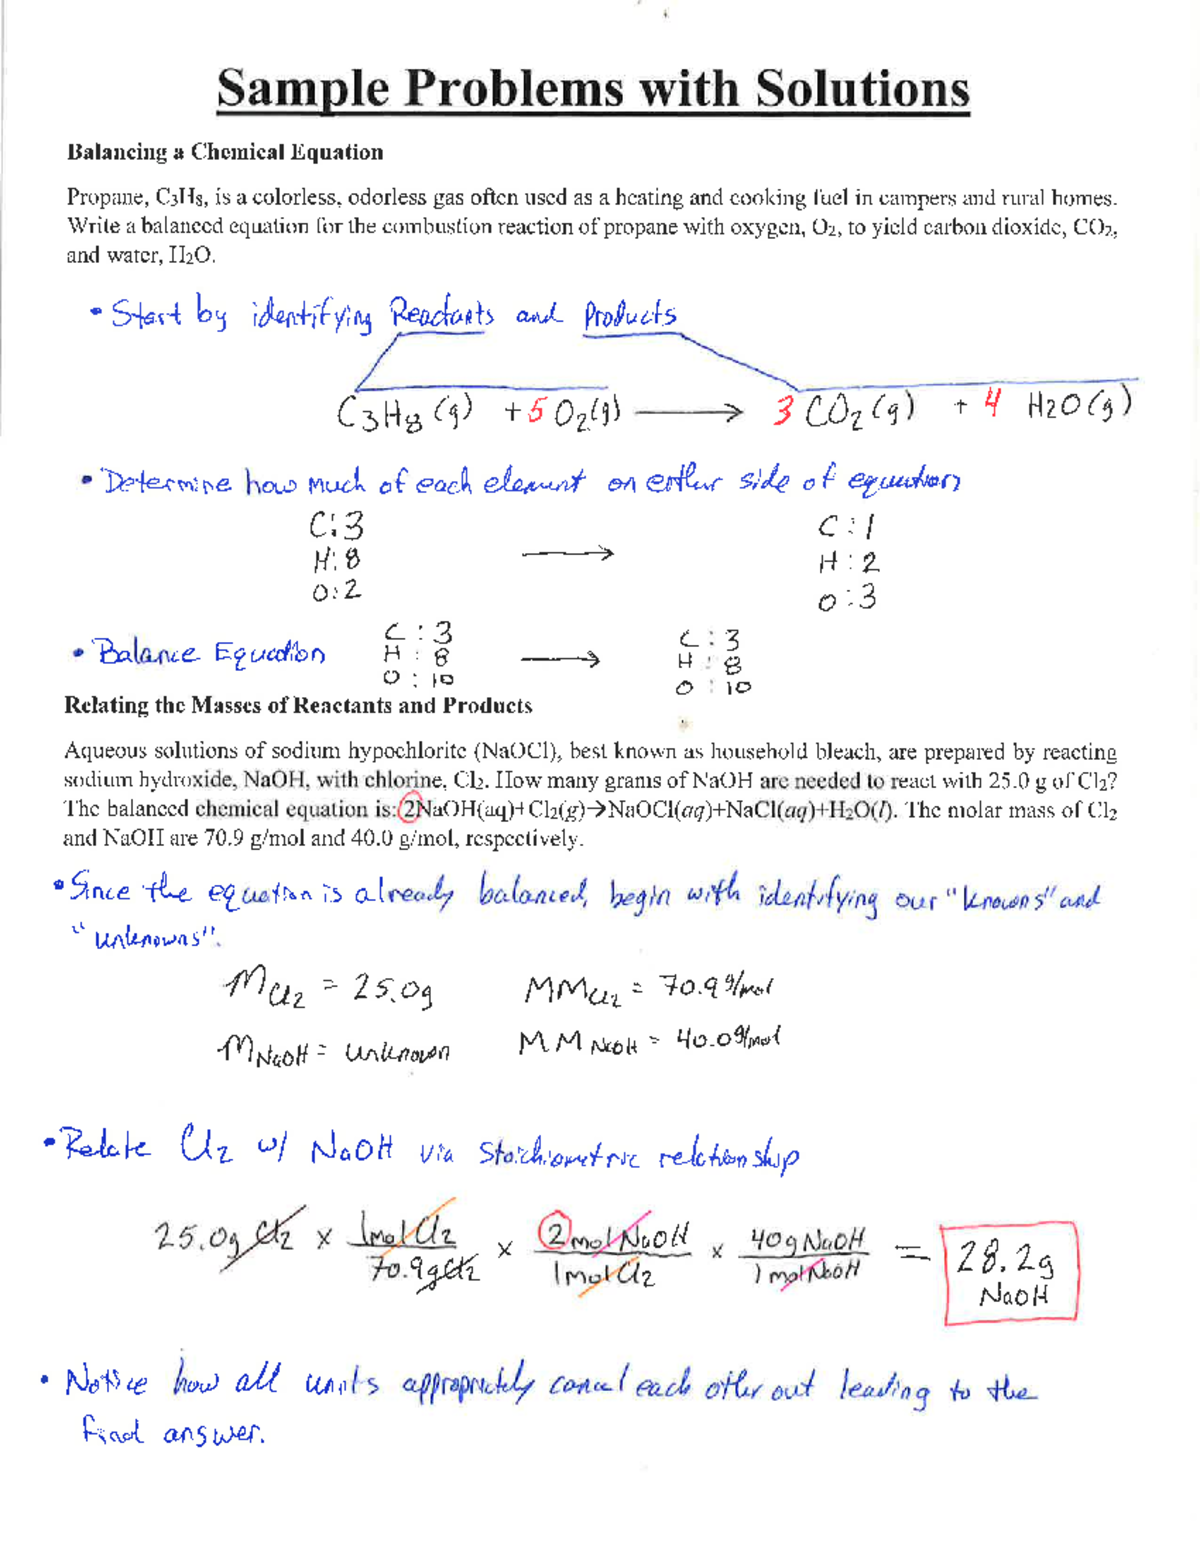 Sample Problems with Solutions
Balancing a Chemical Equation
Propane, C3H8, is a colorless, odorless gas often used as a heating and cooking fuel in campers and rural homes.
Write a balanced equation for the combustion reaction of propane with oxygen, O2, to yield carbon dioxide, CO2,
and water, H2O.
• Start by identifying Reactants and Products
C3H8(g) + 5 O2(g) → 3 CO2(g) + 4 H2O(g)
• Determine how much of each element on either side of equation
C: 3 C: 1
H: 8 → H: 2
O: 2 O: 3
• Balance Equation C: 3 → C: 3
H: 8 H: 8
O: 10 O: 10
Relating the Masses of Reactants and Products
Aqueous solutions of sodium hypochlorite (NaOCl), best known as household bleach, are prepared by reacting
sodium hydroxide, NaOH, with chlorine, Cl2. How many grams of NaOH are needed to react with 25.0 g of Cl2?
The balanced chemical equation is: 2NaOH(aq)+Cl2(g)→NaOCl(aq)+NaCl(aq)+H2O(l). The molar mass of Cl2
and NaOH are 70.9 g/mol and 40.0 g/mol, respectively.
• Since the equation is already balanced, begin with identifying our "knowns" and
"unknowns".
mCl2 = 25.0g MMCl2 = 70.9 g/mol
mNaOH = unknown MMNaOH = 40.0 g/mol
• Relate Cl2 w/ NaOH via Stoichiometric relationship
25.0g Cl2 x 1mol Cl2 / 70.9g Cl2 x 2 mol NaOH / 1mol Cl2 x 40g NaOH / 1 mol NaOH = 28.2g
NaOH
• Notice how all units appropriately cancel each other out leading to the
final answer.